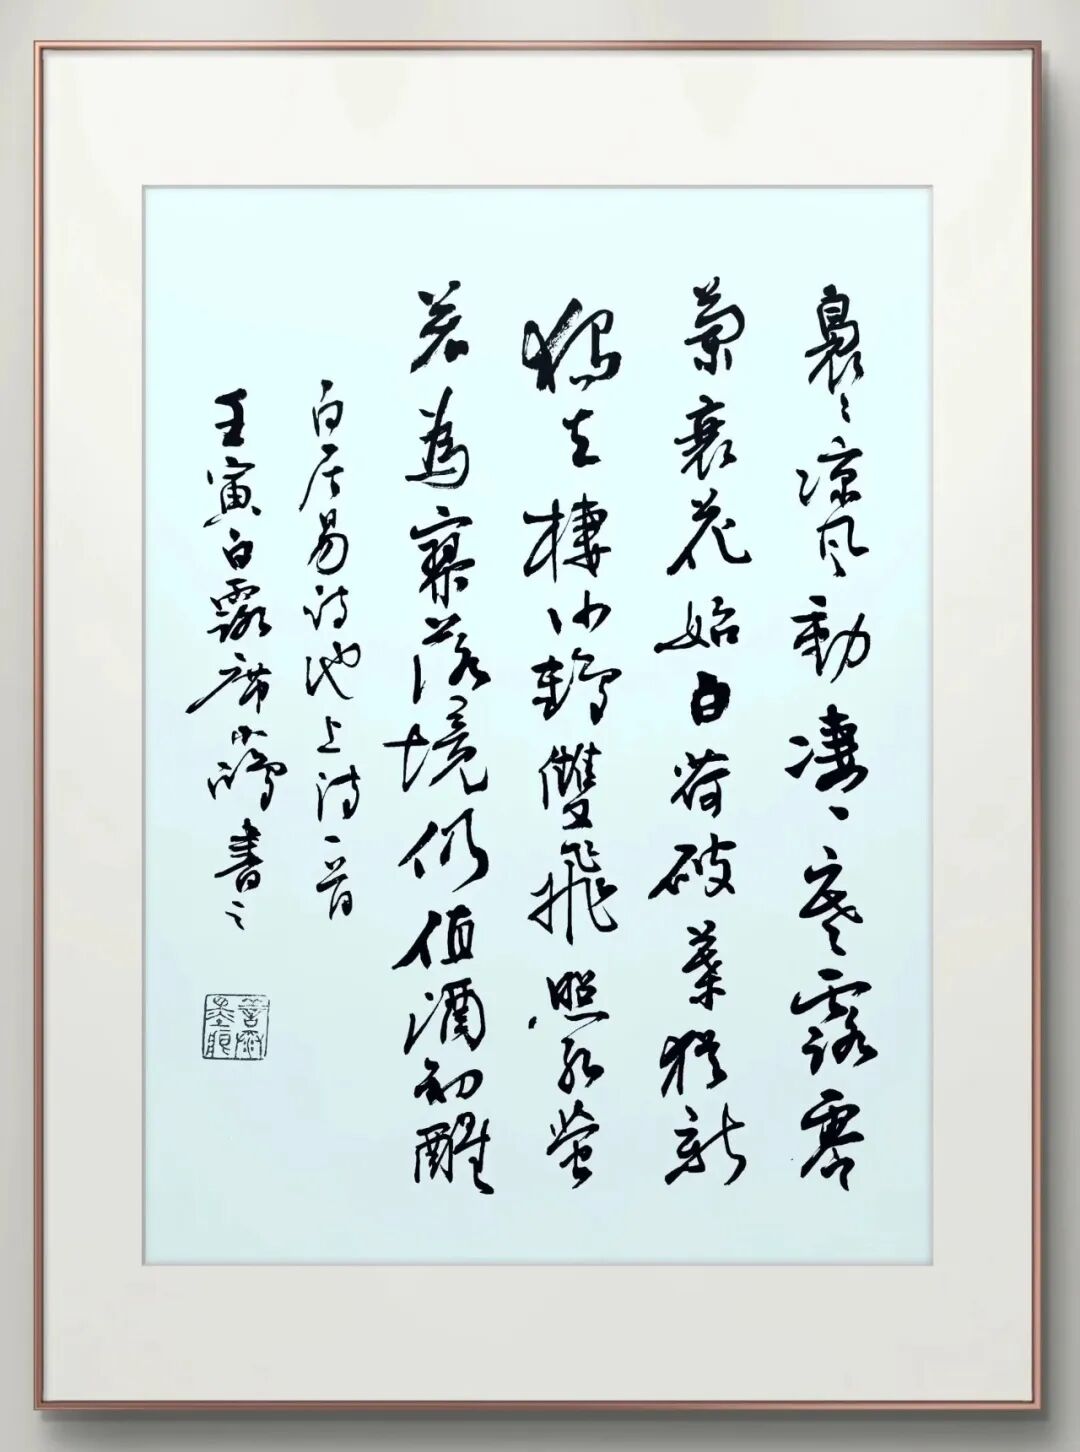 裊〻凉風動凄〻寒露零
蘭衰花始白荷破葉猶新
獨立棲沙鶴雙飛照水螢
若為寥落境仍值酒初醒
白居易詩池上詩一首
壬寅白露席小書之